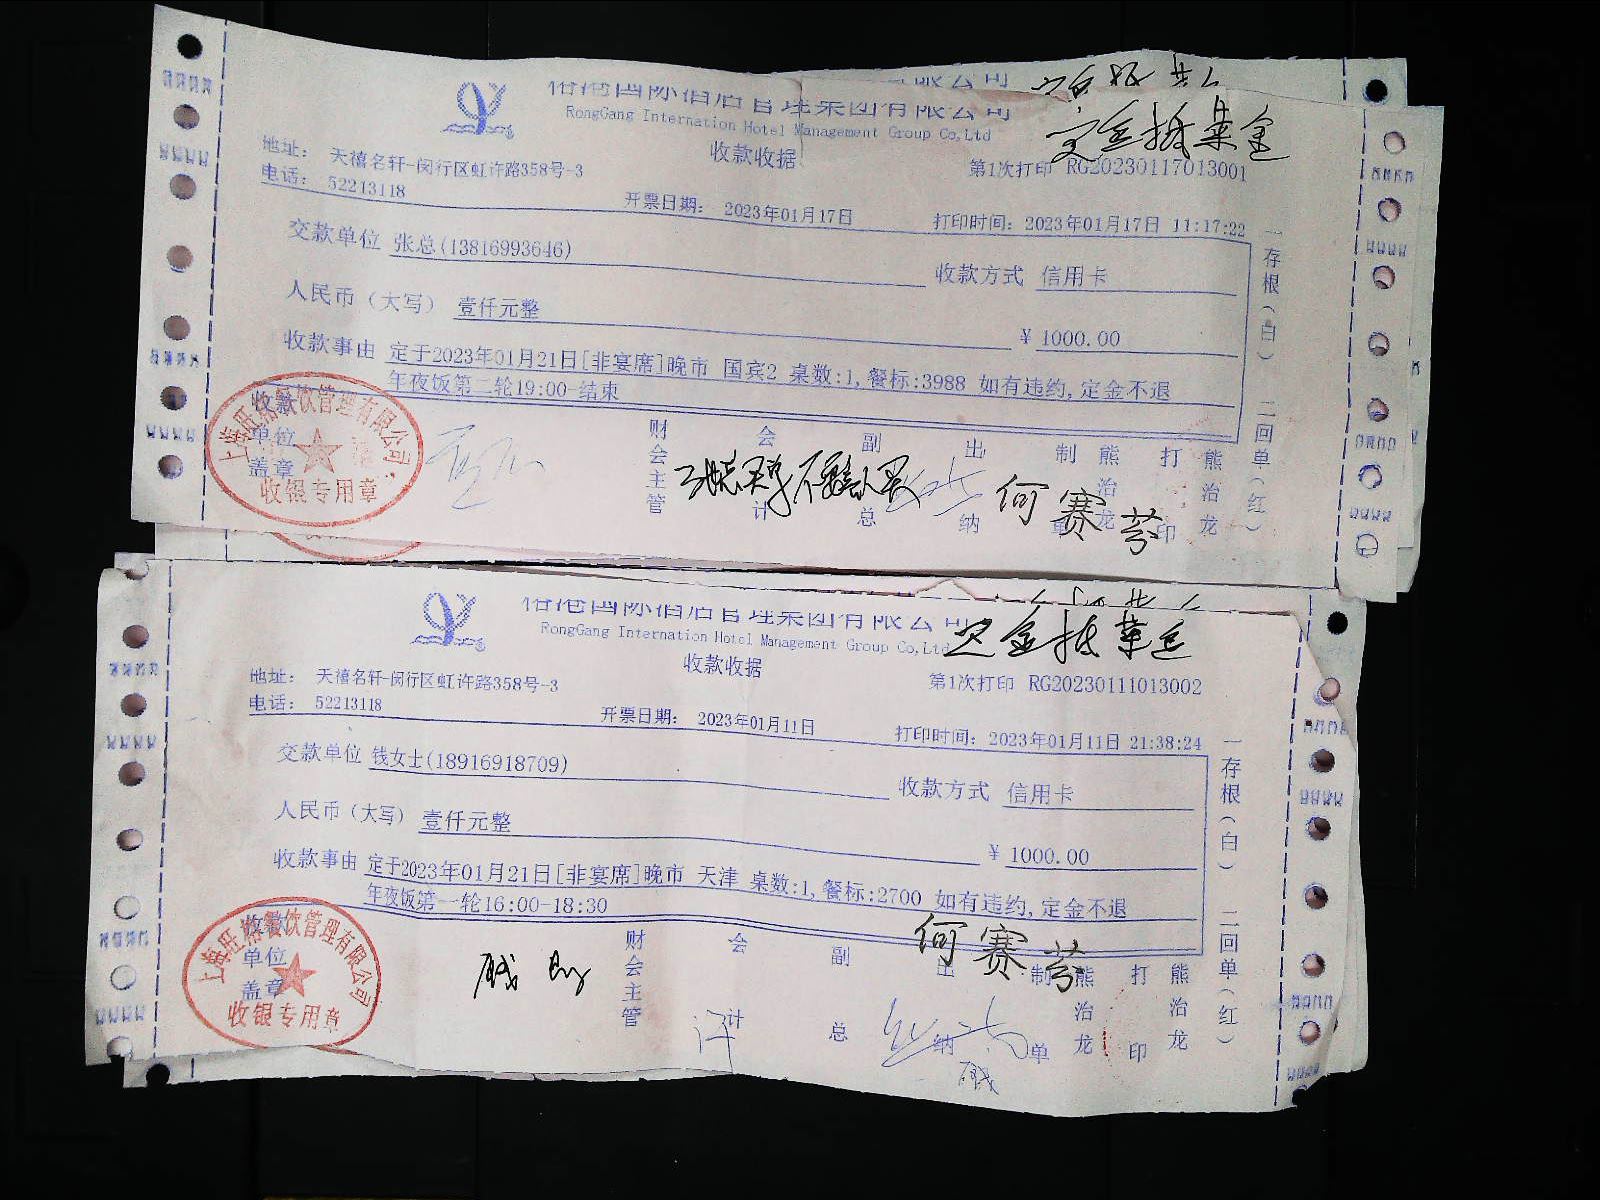 国际酒店管理集团有限公司
RongGang Internation Hotel Management Group Co,Ltd
收款收据
地址： 天禧名轩-闵行区虹许路358号-3
第1次打印 RG20230117013001
电话： 52213118
开票日期： 2023年01月17日
打印时间：2023年01月17日 11:17:22
交款单位 张总(13816993646)
收款方式 信用卡
人民币（大写） 壹仟元整
￥ 1000.00
收款事由 定于2023年01月21日[非宴席]晚市 国宾2 桌数:1,餐标:3988 如有违约,定金不退
年夜饭第二轮19:00-结束
收款单位盖章
财会主管 会计 副总 出纳 制单 熊治龙 打印 熊治龙
何赛芬
收银专用章
一存根（白） 二回单（红）
国际酒店管理集团有限公司
RongGang Internation Hotel Management Group Co,Ltd
收款收据
地址： 天禧名轩-闵行区虹许路358号-3
第1次打印 RG20230111013002
电话： 52213118
开票日期： 2023年01月11日
打印时间：2023年01月11日 21:38:24
交款单位 钱女士(18916918709)
收款方式 信用卡
人民币（大写） 壹仟元整
￥ 1000.00
收款事由 定于2023年01月21日[非宴席]晚市 天津 桌数:1,餐标:2700 如有违约,定金不退
年夜饭第一轮16:00-18:30
收款单位盖章
财会主管 会计 副总 出纳 制单 熊治龙 打印 熊治龙
何赛芬
收银专用章
一存根（白） 二回单（红）